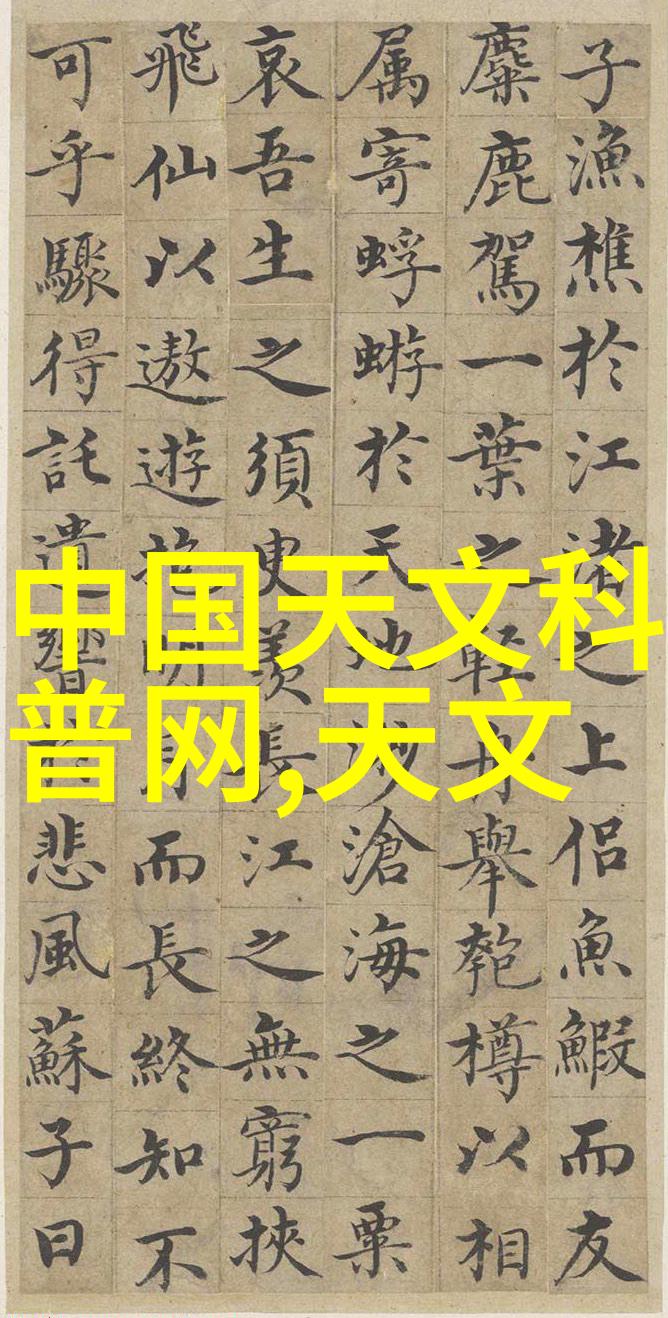 子漁樵於江渚之上侣魚鰕而友
麋鹿駕一葉之輕舟舉匏樽以相
属寄蜉蝣於天地渺滄海之一粟
哀吾生之須臾羨長江之無窮挾
飛仙以遨遊抱明月而長終知不
可乎驟得託遺響於悲風蘇子曰
中国天文科
普网,天文